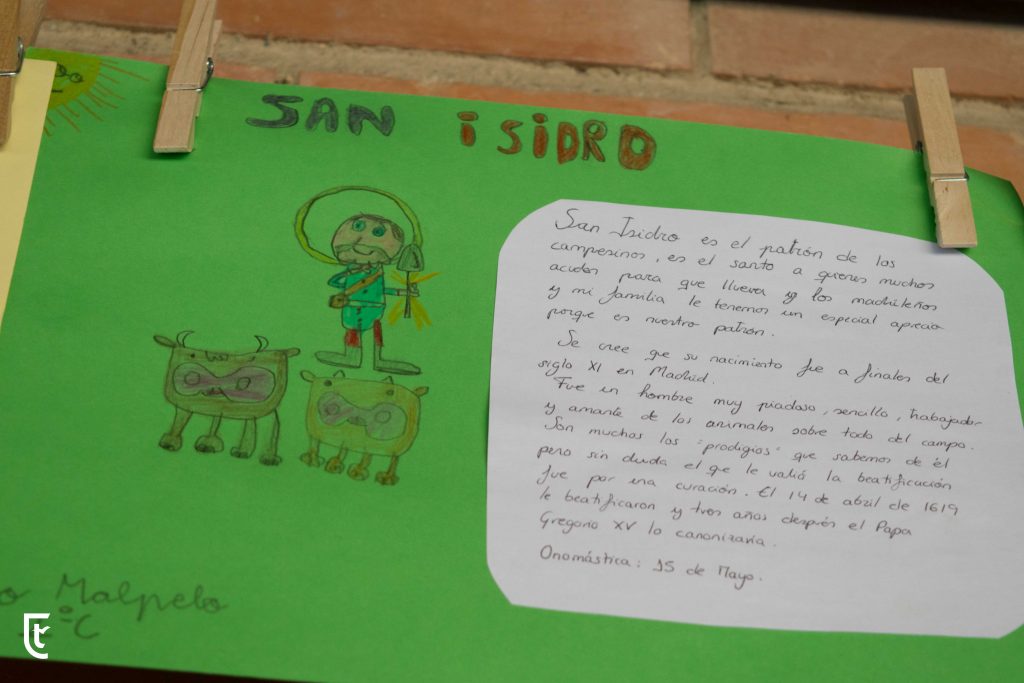 SAN iSiDRO
San Isidro es el patrón de los
campesinos, es el santo a quienes muchos
acuden para que llueva y los madrileños
y mi familia le tenemos un especial aprecio
porque es nuestro patrón.
Se cree que su nacimiento fue a finales del
siglo XI en Madrid.
Fue un hombre muy piadoso, sencillo, trabajador
y amante de los animales sobre todo del campo.
Son muchos los "prodigios" que sabemos de él
pero sin duda el que le valió la beatificación
fue por una curación. El 14 de abril de 1619
le beatificaron y tres años después el Papa
Gregorio XV lo canonizaría.
Onomástica: 15 de Mayo.
Malpelo
ºC